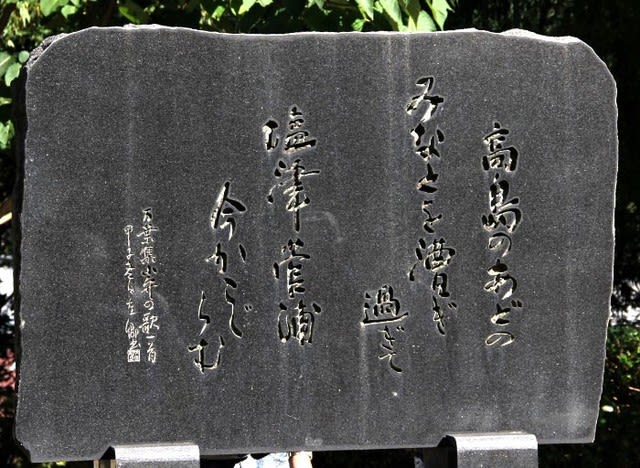 高島のあどの
みなとを漕ぎ
過ぎて
塩津菅浦
今かこぐらむ
万葉集小弁の歌一首